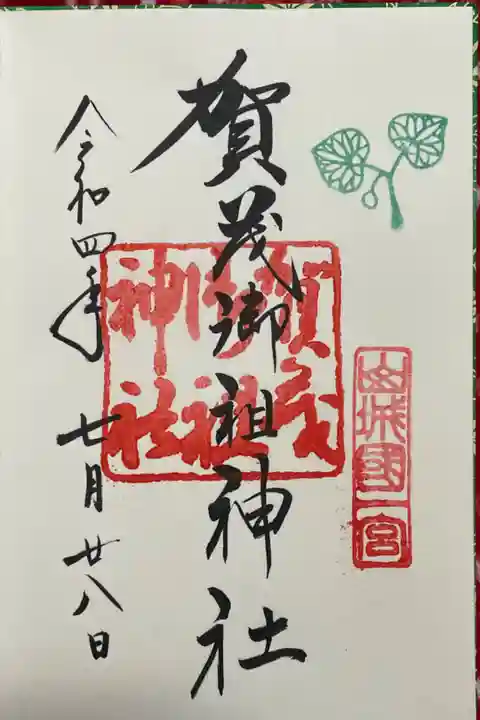 山城國一宮
賀茂御祖神社
賀茂
御祖
神社
令和四年 七月廿八日